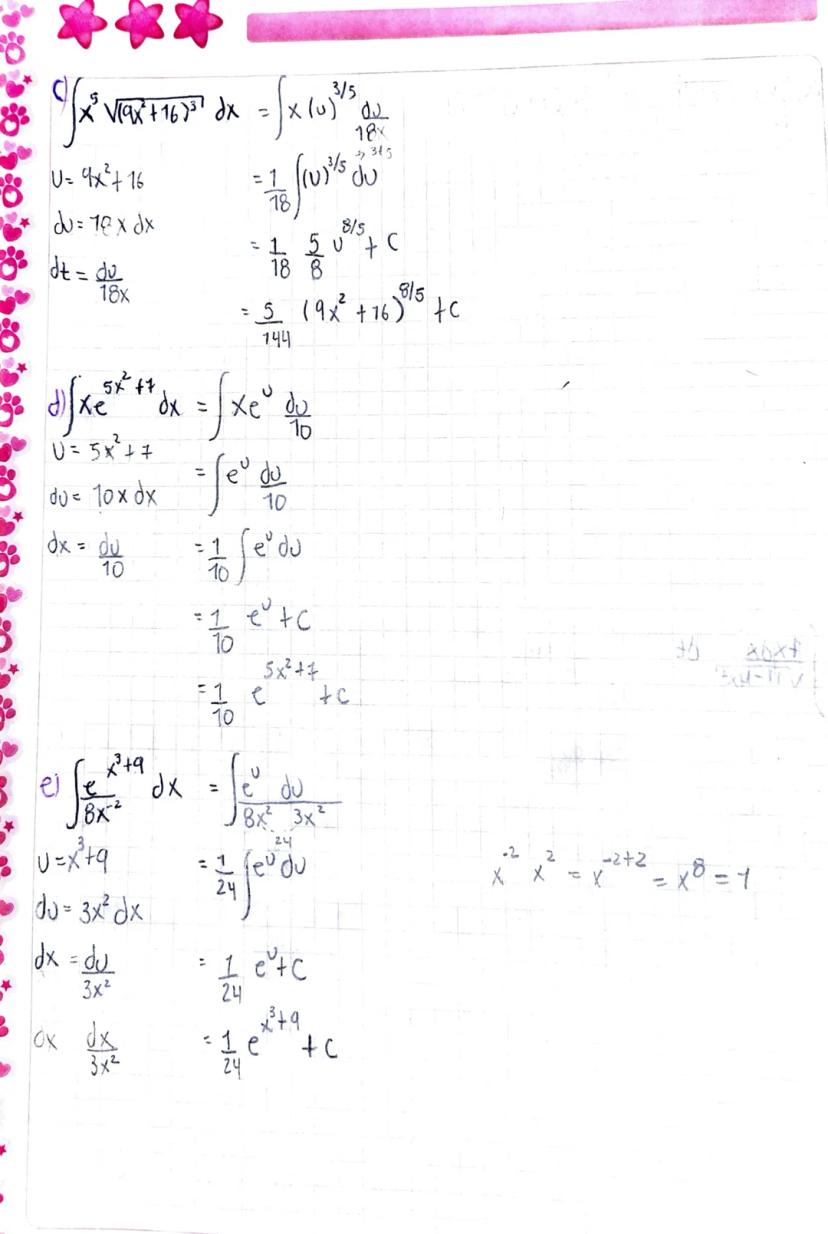 c) ∫x⁵√(9x²+16)³ dx = ∫x(u)^3/5 du/18x
u = 9x²+16
= 1/18 ∫(u)^3/5 du
du = 18x dx
= 1/18 5/8 u^8/5 + C
dt = du/18x
= 5/144 (9x²+16)^8/5 + C
d) ∫xe^5x²+7 dx = ∫xe^u du/10
u = 5x²+7
= ∫e^u du/10
du = 10x dx
dx = du/10 = 1/10 ∫e^u du
= 1/10 e^u + C
= 1/10 e^5x²+7 + C
e) ∫e^x³+9/8x⁻² dx = ∫e^u du/8x² 3x²
24
u = x³+9 = 1/24 ∫e^u du
x⁻² x² = x⁻²⁺² = x⁸ = 1
du = 3x² dx
dx = du/3x² = 1/24 e^u + C
dx dx/3x² = 1/24 e^x³+9 + C